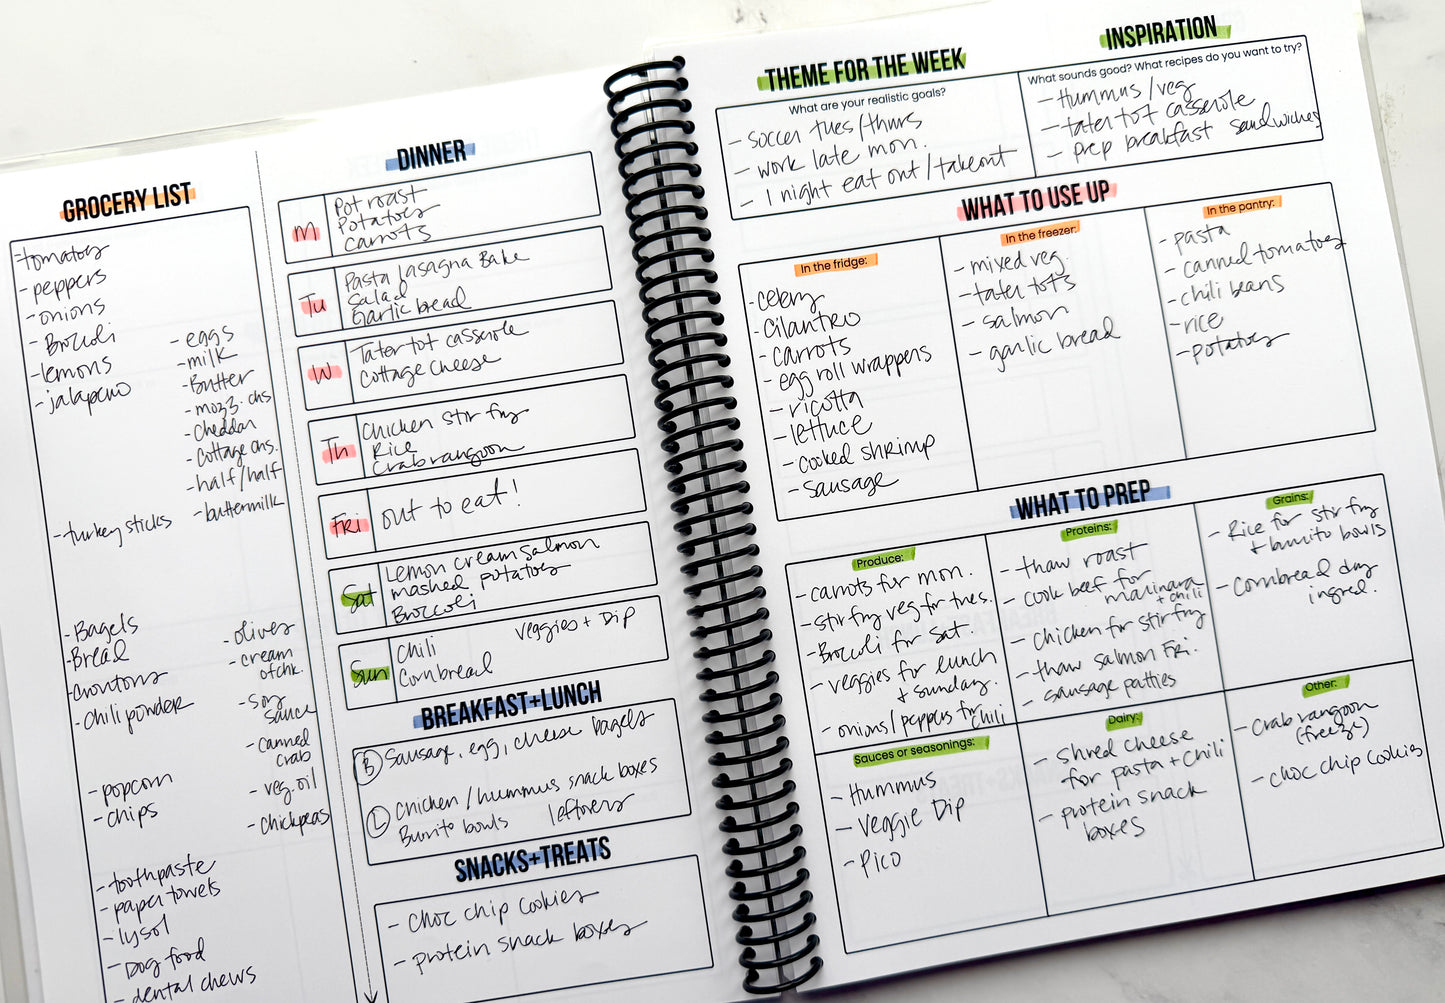 GROCERY LIST
-tomatoes
- peppers
- onions
- Broccoli
- lemons
- jalapeno
- eggs
- milk
- Butter
- mozz. chs
- cheddar
- cottage chs.
- half/half
- buttermilk
- turkey sticks
- Bagels
- Bread
- croutons
- chili powder
- olives
- cream ofchk.
- soy sauce
- canned crab
- veg. oil
- chickpeas
- popcorn
- chips
- toothpaste
- paper towels
- lysol
- Dog food
- dental chews
DINNER
M
Pot roast
Potatoes
Carrots
Tu
Pasta lasagna Bake
Salad
Garlic bread
W
Tater tot casserole
Cottage Cheese
Th
Chicken stir fry
Rice
Crab rangoon
FRI
out to eat!
Sat
Lemon cream salmon
mashed potatoes
Broccoli
Sun
Chili
Cornbread
veggies + Dip
BREAKFAST+LUNCH
B Sausage, egg, cheese bagels
L Chicken/hummus snack boxes
Burrito bowls leftovers
SNACKS+TREATS
- choc chip cookies
- protein snack boxes
THEME FOR THE WEEK
What are your realistic goals?
- soccer tues/thurs
- work late mon.
- 1 night eat out/takeout
INSPIRATION
What sounds good? What recipes do you want to try?
- Hummus/veg
- tater tot casserole
- prep breakfast sandwiches
WHAT TO USE UP
In the fridge:
- celery
- Cilantro
- carrots
- egg roll wrappers
- ricotta
- lettuce
- cooked shrimp
- sausage
In the freezer:
- mixed veg.
- tater tots
- salmon
- garlic bread
In the pantry:
- pasta
- canned tomatoes
- chili beans
- rice
- potatoes
WHAT TO PREP
Produce:
- carrots for mon.
- stir fry veg for tues.
- Broccoli for sat.
- veggies for lunch
+ sunday.
- onions/peppers for chili
Proteins:
- thaw roast
- cook beef for
marinara
+ chili
- chicken for stir fry
- thaw salmon FRI.
- sausage patties
Grains:
- Rice for stir fry
+ burrito bowls
- Cornbread dry
ingred.
Sauces or seasonings:
- Hummus
- Veggie Dip
- Pico
Dairy:
- shred cheese
for pasta + chili
- protein snack
boxes
Other:
- Crab rangoon
(freeze)
- choc chip cookies